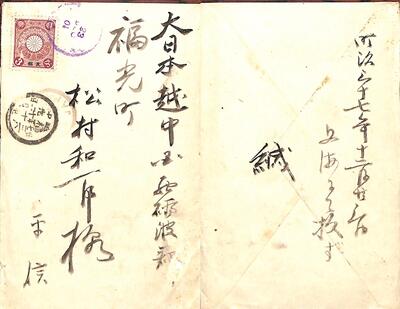 大日本越中国西礪波郡
福光町
松村和一郎様
平信
明治三十七年十二月廿八日
上海より投す
緘